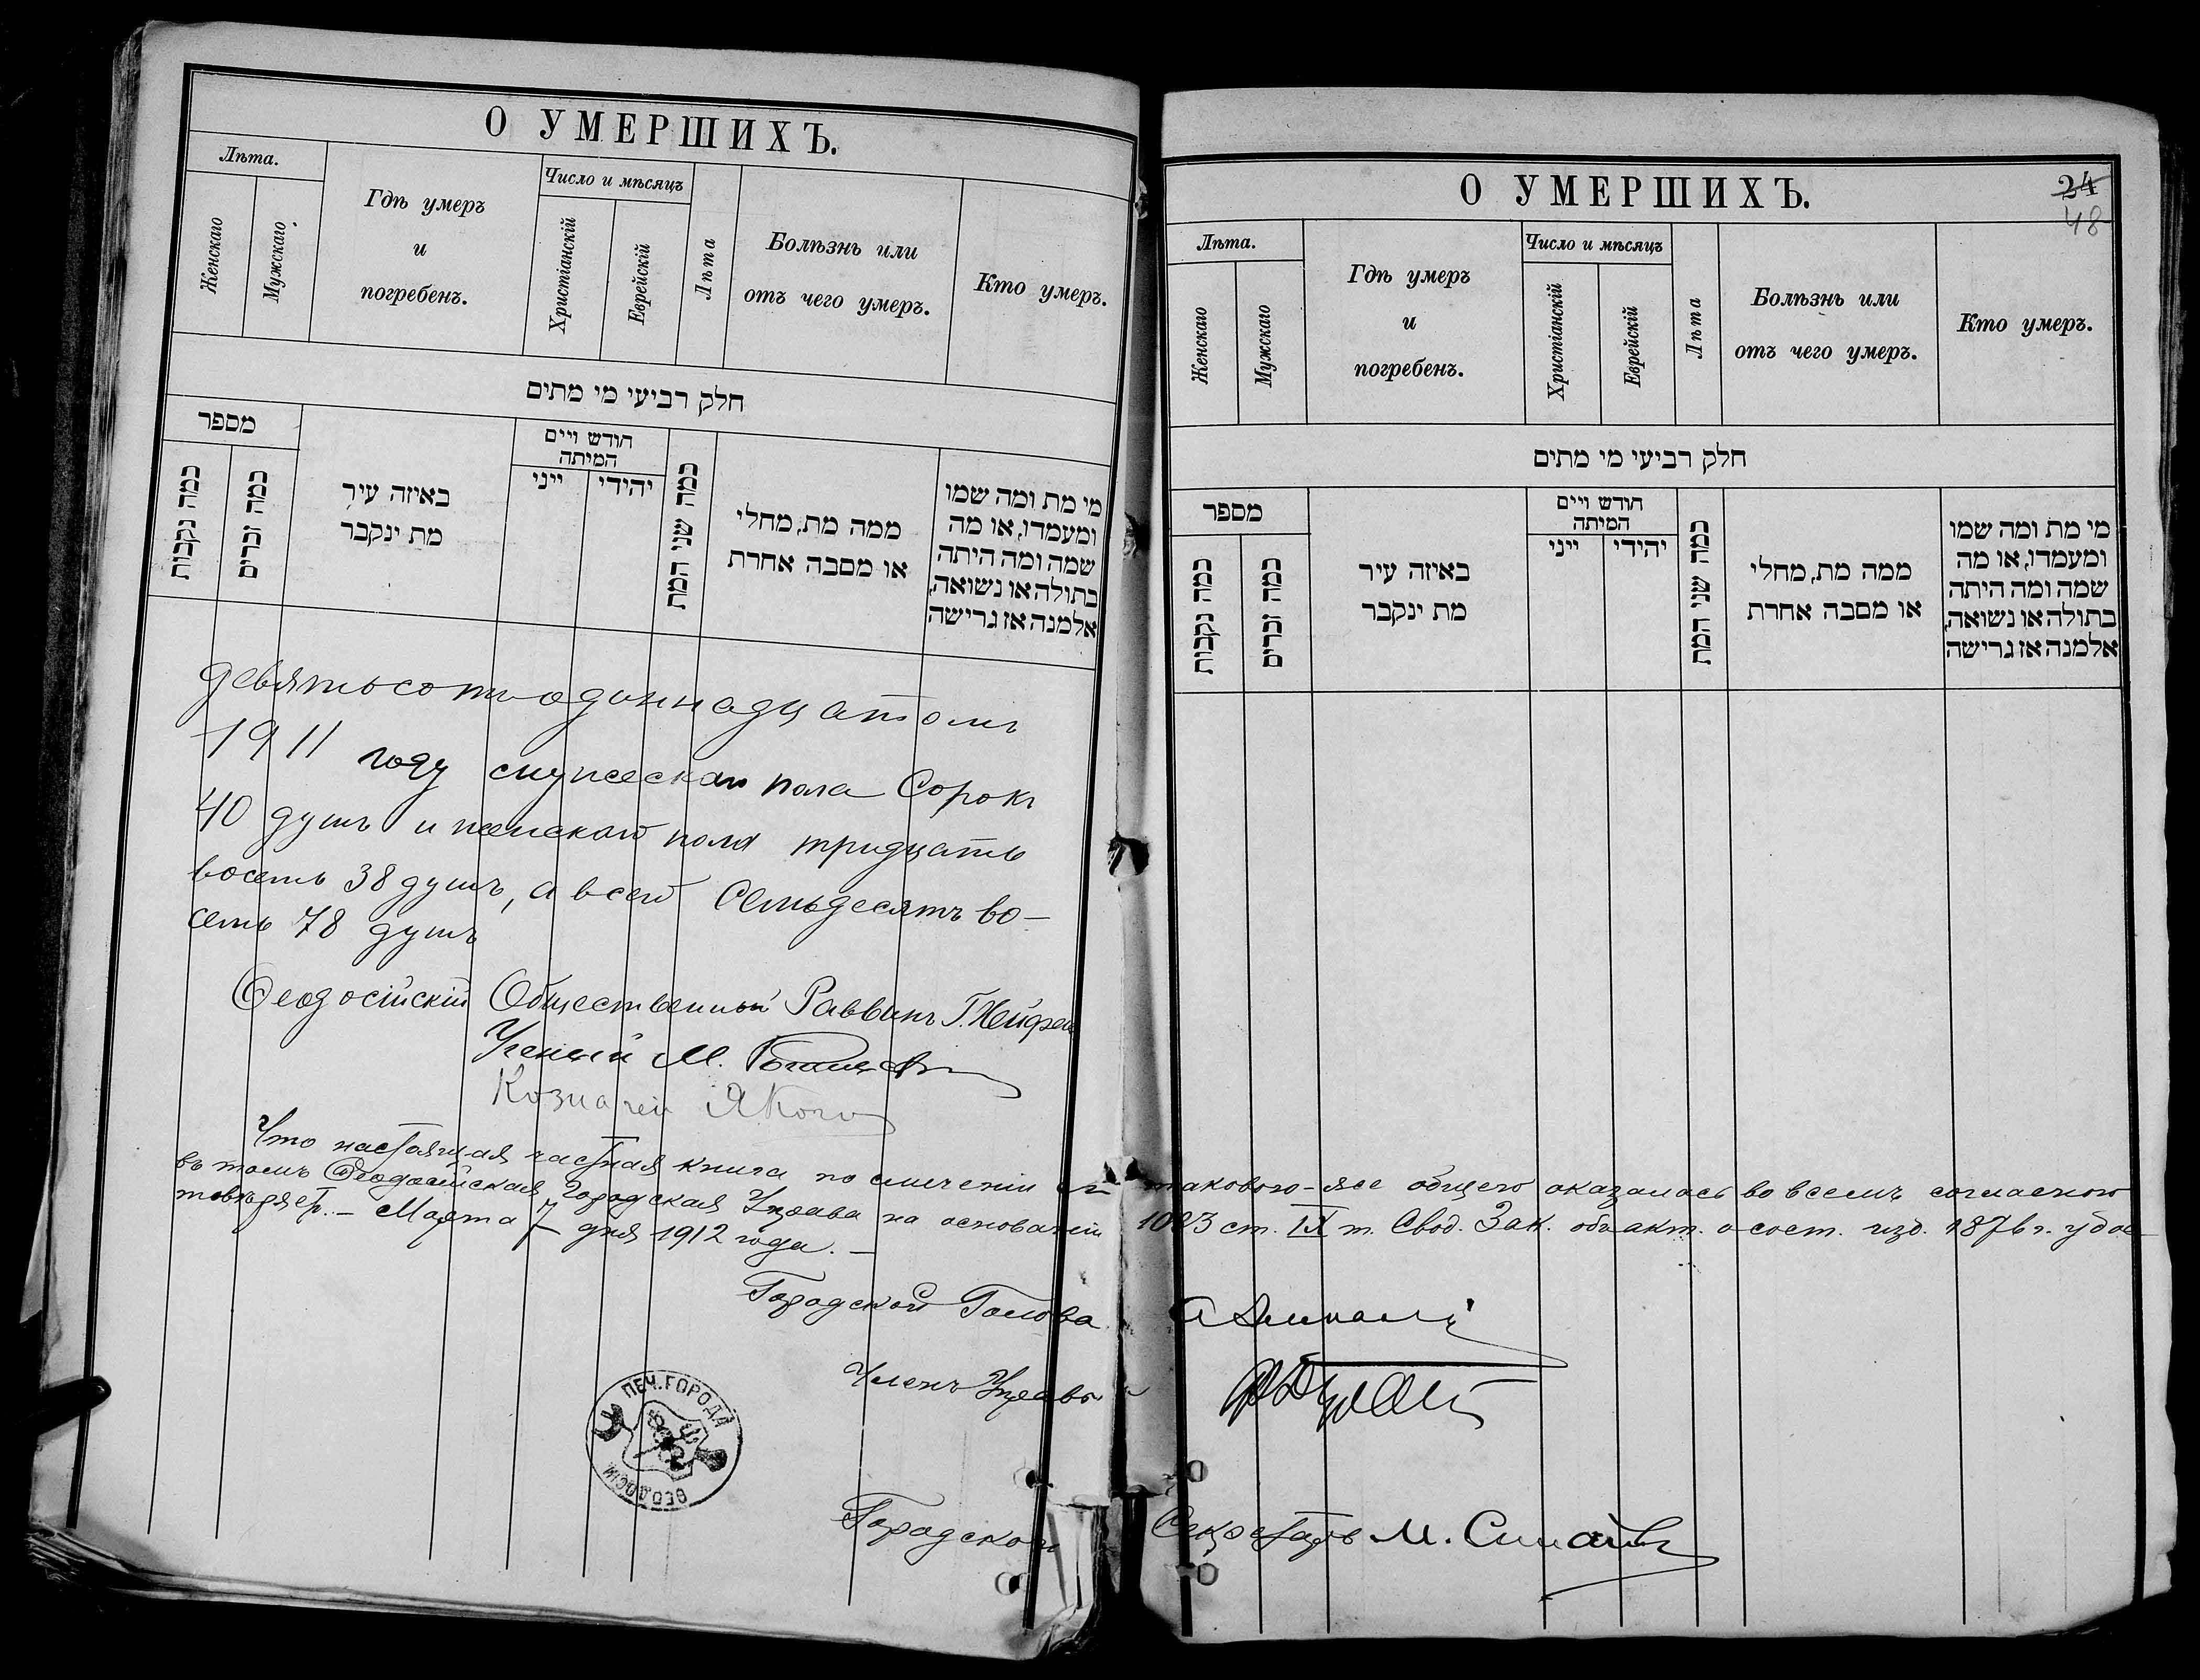 О УМЕРШИХЪ.
Лѣта.
Женскаго
Мужскаго
Гдѣ умеръ
и
погребенъ.
Число и мѣсяцъ
Христіанскій
Еврейскій
Лѣта
Болѣзнь или
отъ чего умеръ.
Кто умеръ.
חלק רביעי מי מתים
מספר
כמה נקבות
כמה זכרים
באיזה עיר
מת ינקבר
חודש ויים
המיתה
יהודי
ייני
כמה שני המת
ממה מת, מחלי
או מסבה אחרת
מי מת ומה שמו
ומעמדו, או מה
שמה ומה היתה
בתולה או נשואה,
אלמנה אז גרישה
девятьсотъ одиннадцатомъ
1911 году мужескаго пола Сорокъ
40 душъ и женскаго пола тридцать
восемь 38 душъ, а всего Семьдесятъ во-
семь 78 душъ
Ѳеодосійскій Общественный Раввинъ Г.
Ученый М.
Казначей
О УМЕРШИХЪ.
24
48
Лѣта.
Женскаго
Мужскаго
Гдѣ умеръ
и
погребенъ.
Число и мѣсяцъ
Христіанскій
Еврейскій
Лѣта
Болѣзнь или
отъ чего умеръ.
Кто умеръ.
חלק רביעי מי מתים
מספר
כמה נקבות
כמה זכרים
באיזה עיר
מת ינקבר
חודש ויים
המיתה
יהודי
ייני
כמה שני המת
ממה מת, מחלי
או מסבה אחרת
מי מת ומה שמו
ומעמדו, או מה
שמה ומה היתה
בתולה או נשואה,
אלמנה אז גרישה
Что настоящая частная книга по сличеніи съ таковою-же общею оказалась во всемъ согласною
въ томъ Ѳеодосійская Городская Управа на основаніи 1083 ст. IX т. Свод. Зак. объ акт. о сост. изд. 1876 г. удос-
товѣряетъ.- Марта 7 дня 1912 года.-
Городской Голова
Членъ Управы
ПЕЧ. ГОРОДА
ѲЕОДОСІИ
Городской Секретарь М.